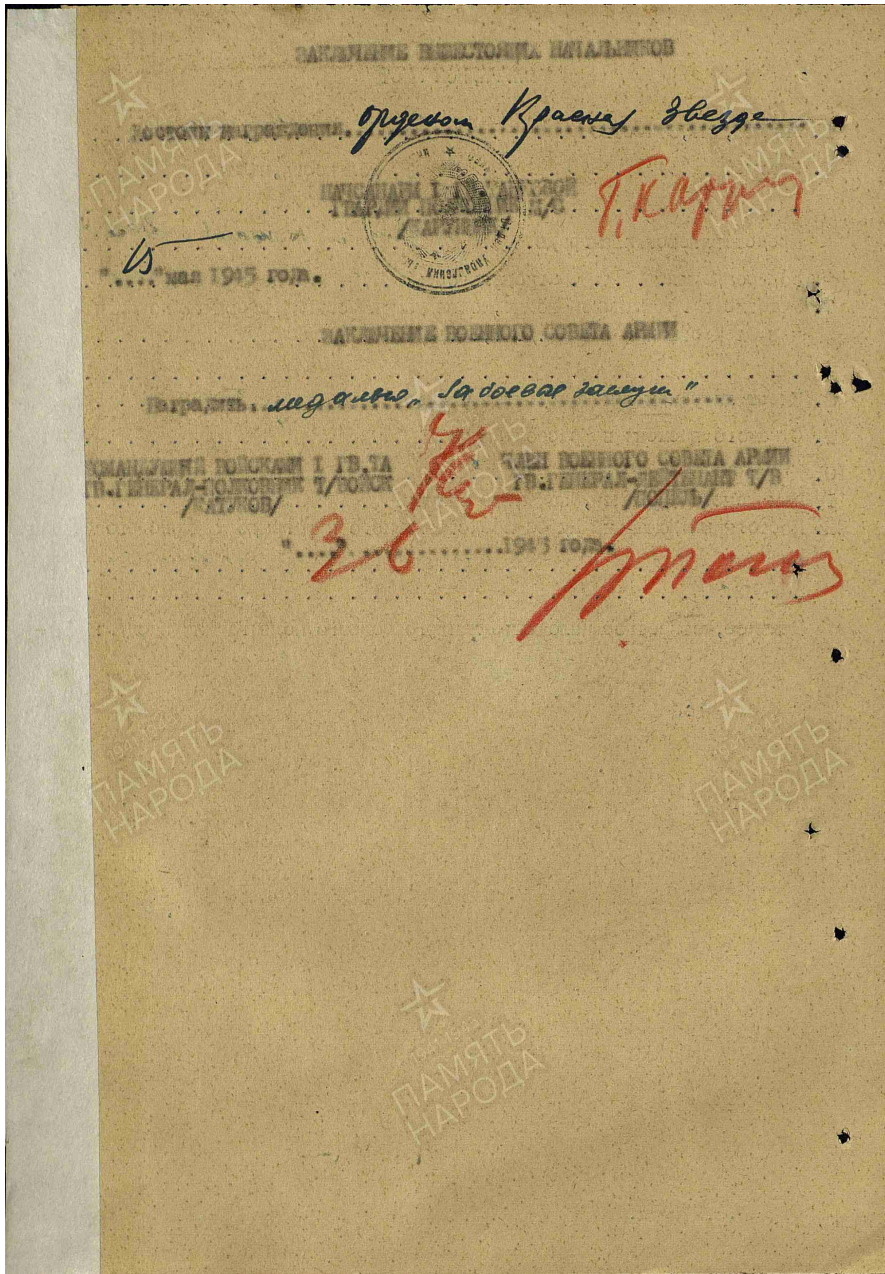 ЗАКЛЮЧЕНИЕ ВЫШЕСТОЯЩИХ НАЧАЛЬНИКОВ
Достоин награждения орденом Красная Звезда
НАЧСАНАРМ I ГВ. ТАНКОВОЙ
ГВАРДИИ ПОЛКОВНИК М/С
Г, Карт
"15" мая 1945 года.
ЗАКЛЮЧЕНИЕ ВОЕННОГО СОВЕТА АРМИИ
Наградить медалью „За боевые заслуги"
КОМАНДУЮЩИЙ ВОЙСКАМИ I ГВ.ТА
ГВ.ГЕНЕРАЛ-ПОЛКОВНИК Т/ВОЙСК
/КАТУКОВ/
ЧЛЕН ВОЕННОГО СОВЕТА АРМИИ
ГВ.ГЕНЕРАЛ-ЛЕЙТЕНАНТ Т/В
/ПОПЕЛЬ/
"3 6 1945 года.
ПАМЯТЬ НАРОДА
ПАМЯТЬ НАРОДА
ПАМЯТЬ НАРОДА
ПАМЯТЬ НАРОДА
ПАМЯТЬ НАРОДА
ПАМЯТЬ НАРОДА